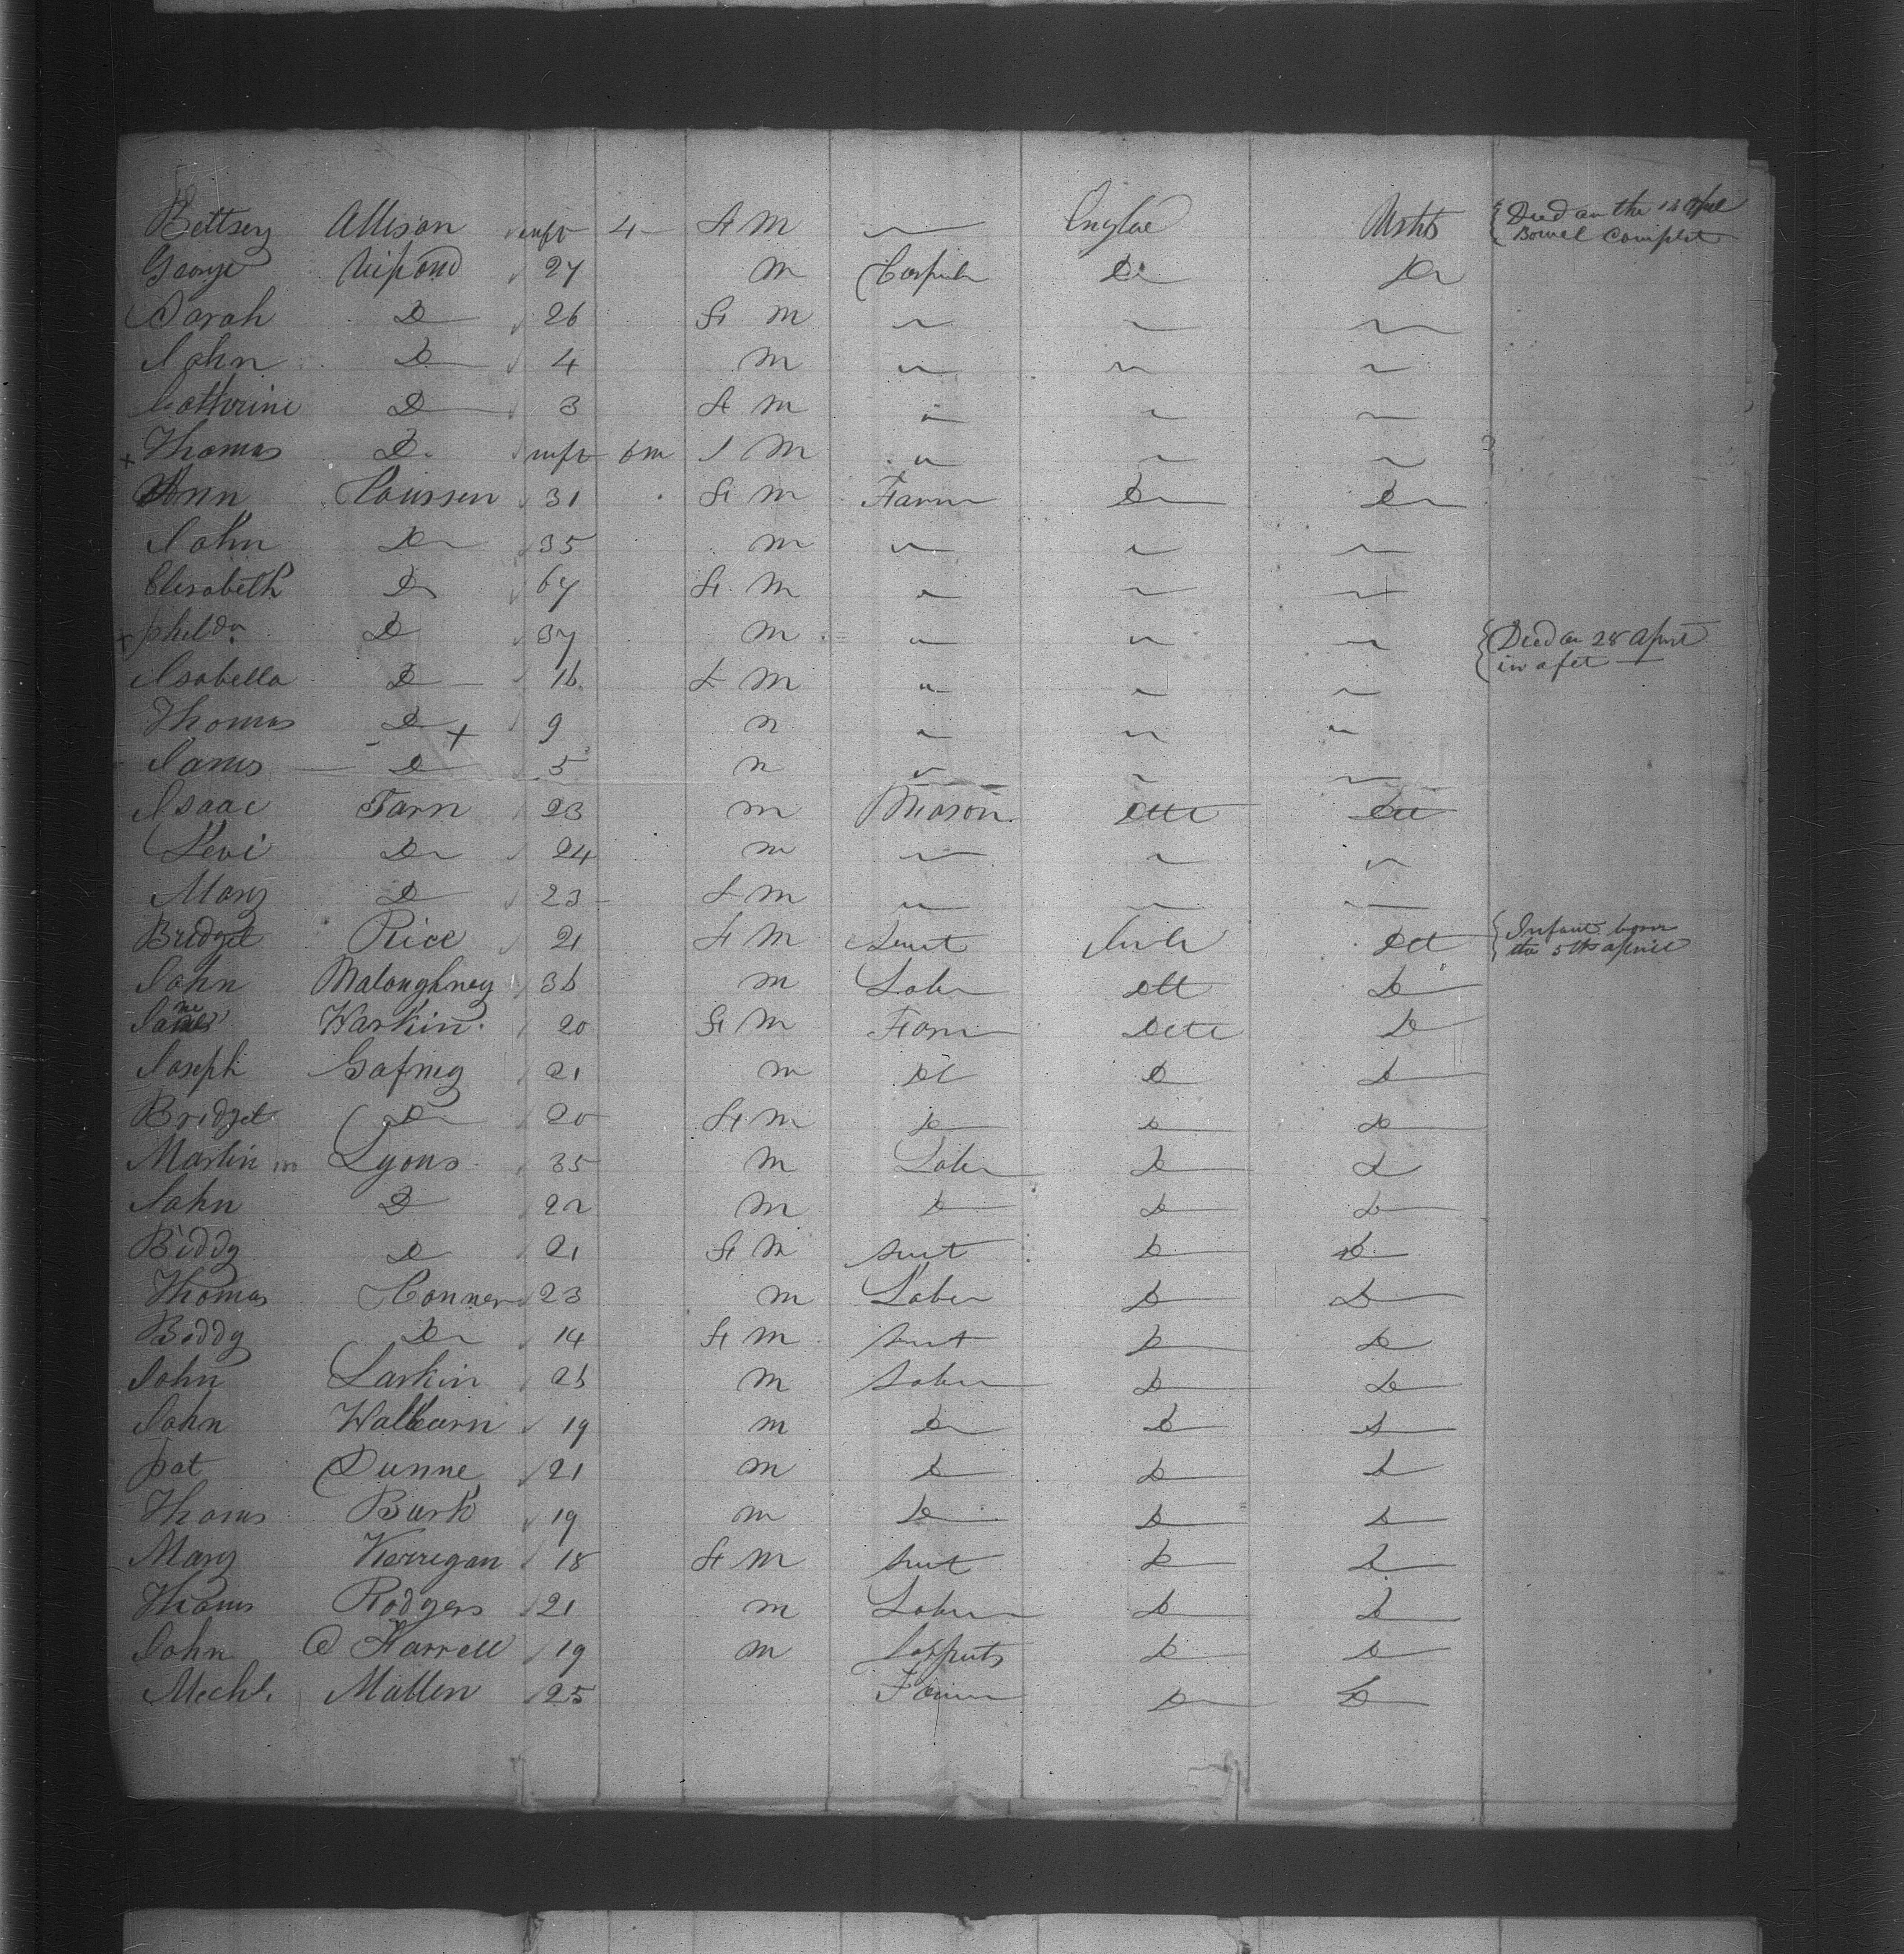 Bettsey Allison inft 4 F M Englae Usts { Died on the 12 Aprl Bowel Complet
George Vipond 27 M Carpntr Do Do
Sarah D 26 F M
John D 4 M
Catthrine D 3 F M
+ Thomas D. inft 6m M
Ann 31 F M Farm Do Do
John Do 35 M
Elesabeth D 67 F M
+ D 37 M { Died on 28 Aprel in a fet
Isabella D 16 F M
Thomas D + 9 m
James D 5 m
Isaac Tarn 23 m Meason. Dtto Dtt
Levi Do 24 m
Mary D 23 F M
Bridget Rice 21 F M Servt Irela Dtt { Infant born the 5th aprill
John Maloughney 36 m Laber Dtt D
Larkin. 20 F M Farm Dtto D
Joseph Gafney 21 m Dt D D
Bridget Do 20 F M D D D
Martin Lyons 35 m Laber D D
John D 22 m D D D
Biddy D 21 F M Servt D D
Thomas Conner 23 m Laber D D
Biddy Do 14 F M Servt D D
John Larkin 26 m Laber D D
John 19 m D D D
pat Dunne 21 m D D D
Thoms Burk 19 m D D D
Mary Kerrigan 18 F M Servt D D
Thoms Rodgers 21 m Laber D D
John O Farrell 19 m D D
Mechl. Mallen 25 Farm D D